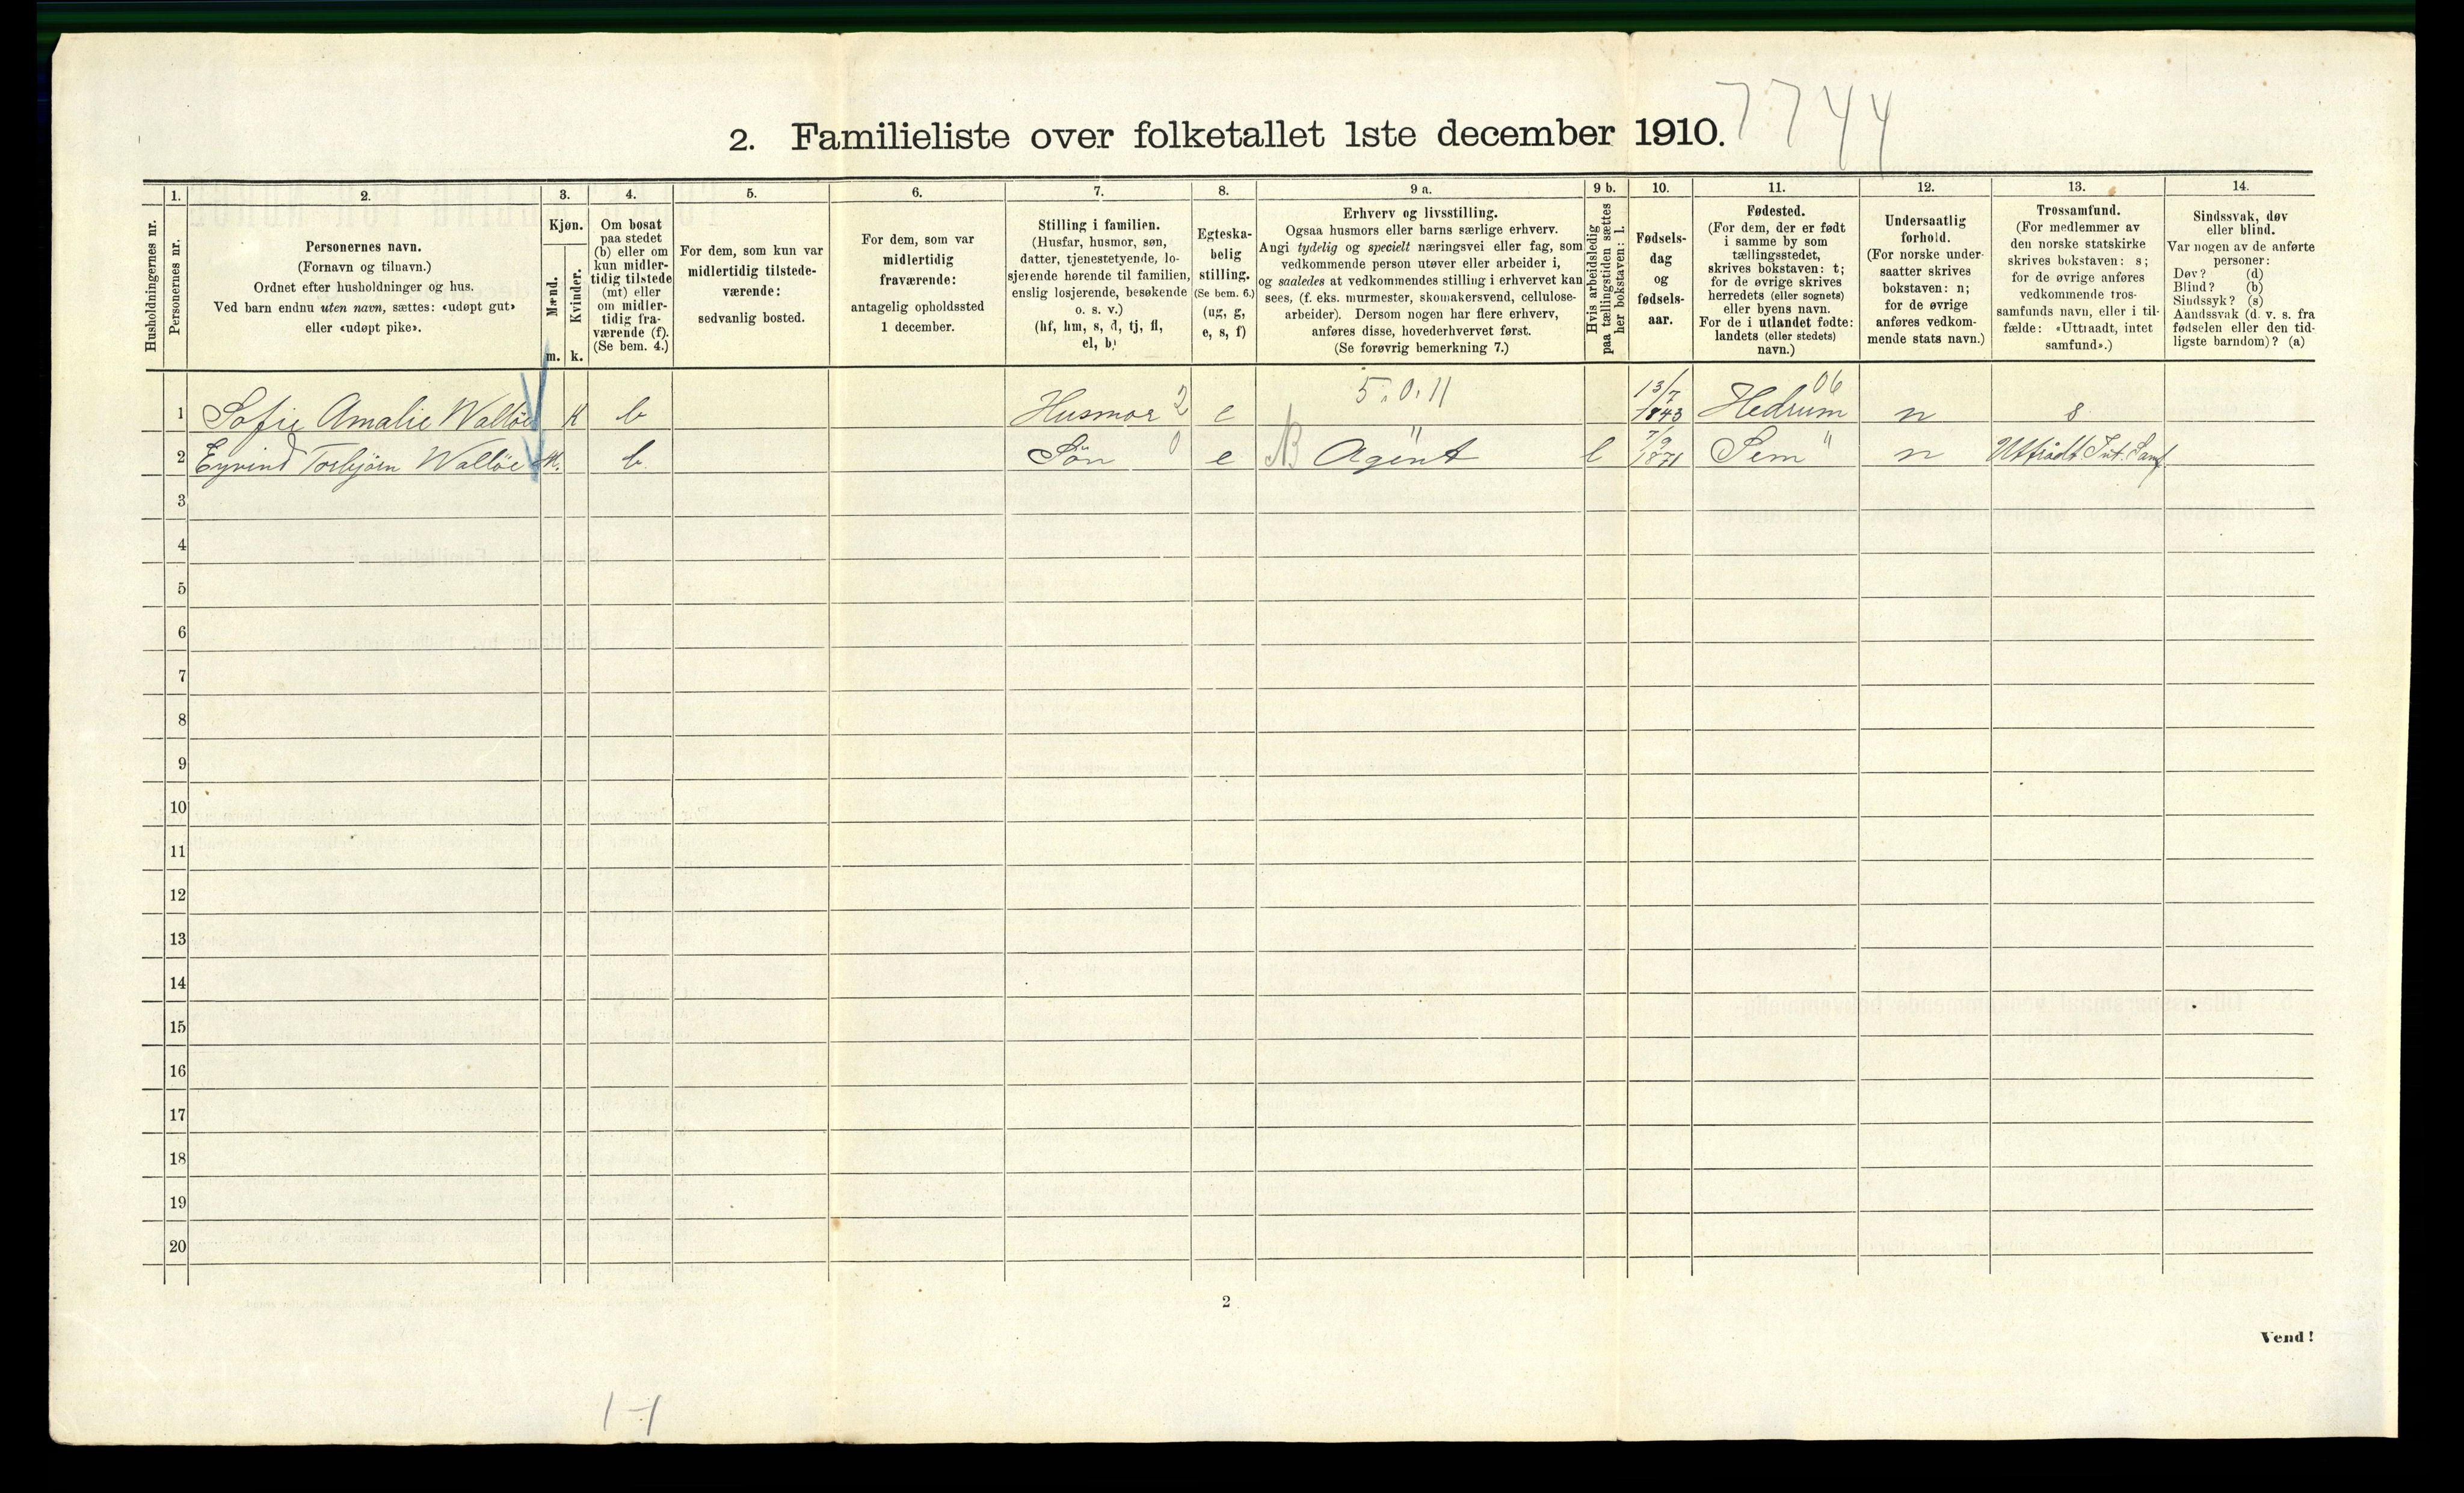 7744
2. Familieliste over folketallet 1ste december 1910.
1. 2. 3. 4. 5. 6. 7. 8. 9 a. 9 b. 10. 11. 12. 13. 14.
Husholdningernes nr.
Personernes nr.
Personernes navn.
(Fornavn og tilnavn.)
Ordnet efter husholdninger og hus.
Ved barn endnu uten navn, sættes: «udøpt gut»
eller «udøpt pike».
Kjøn.
Mænd.
Kvinder.
m. k.
Om bosat
paa stedet
(b) eller om
kun midler-
tidig tilstede
(mt) eller
om midler-
tidig fra-
værende (f).
(Se bem. 4.)
For dem, som kun var
midlertidig tilstede-
værende:
sedvanlig bosted.
For dem, som var
midlertidig
fraværende:
antagelig opholdssted
1 december.
Stilling i familien.
(Husfar, husmor, søn,
datter, tjenestetyende, lo-
sjerende hørende til familien,
enslig losjerende, besøkende
o. s. v.)
(hf, hm, s, d, tj, fl,
el, b)
Egteska-
belig
stilling.
(Se bem. 6.)
(ug, g,
e, s, f)
Erhverv og livsstilling.
Ogsaa husmors eller barns særlige erhverv.
Angi tydelig og specielt næringsvei eller fag, som
vedkommende person utøver eller arbeider i,
og saaledes at vedkommendes stilling i erhvervet kan
sees, (f. eks. murmester, skomakersvend, cellulose-
arbeider). Dersom nogen har flere erhverv,
anføres disse, hovederhvervet først.
(Se forøvrig bemerkning 7.)
Hvis arbeidsledig
paa tællingstiden sættes
her bokstaven: l.
Fødsels-
dag
og
fødsels-
aar.
Fødested.
(For dem, der er født
i samme by som
tællingsstedet,
skrives bokstaven: t;
for de øvrige skrives
herredets (eller sognets)
eller byens navn.
For de i utlandet fødte:
landets (eller stedets)
navn.)
Undersaatlig
forhold.
(For norske under-
saatter skrives
bokstaven: n;
for de øvrige
anføres vedkom-
mende stats navn.)
Trossamfund.
(For medlemmer av
den norske statskirke
skrives bokstaven: s;
for de øvrige anføres
vedkommende tros-
samfunds navn, eller i til-
fælde: «Uttraadt, intet
samfund».)
Sindssvak, døv
eller blind.
Var nogen av de anførte
personer:
Døv? (d)
Blind? (b)
Sindssyk? (s)
Aandssvak (d. v. s. fra
fødselen eller den tid-
ligste barndom)? (a)
5.0.11 13/7 06
1 Sofie Amalie Walløe K b Husmor 2 e " 1843 Hedrum n s
2 Eyvind Torbjørn Walløe M. b Søn 0 e Agent l 7/9 1871 Sem " n Utträdt Int. Samf
3
4
5
6
7
8
9
10
11
12
13
14
15
16
17
18
19
20
2
Vend!
1-1